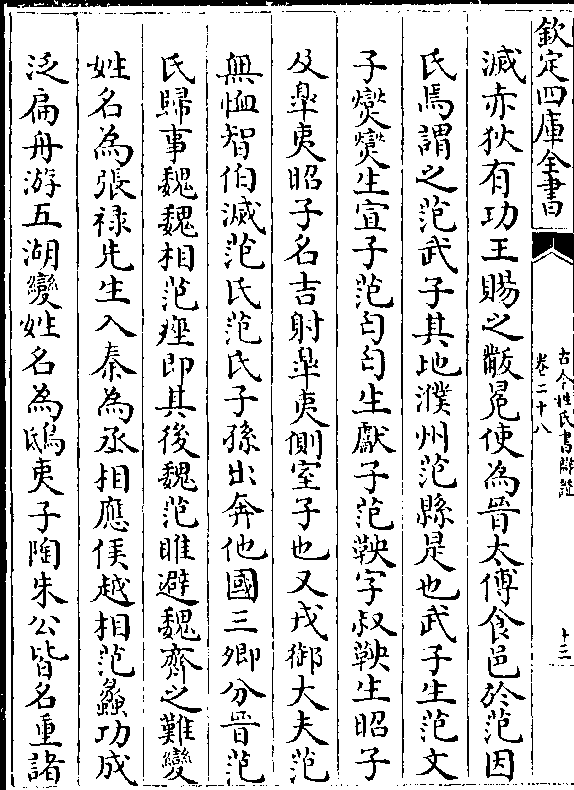 欽定四庫全書
古今姓氏書辯證
卷二十八
十三
滅赤狄有功王賜之黻冕使為晉太傅食邑於范因
氏焉謂之范武子其地濮州范縣是也武子生范文
子燮燮生宣子范匄匄生獻子范鞅字叔鞅生昭子
及臯夷昭子名吉射臯夷側室子也又戎御大夫范
無恤智伯滅范氏范氏子孫出奔他國三卿分晉范
氏歸事魏魏相范痤即其後魏范睢避魏齊之難變
姓名為張祿先生入秦為丞相應侯越相范蠡功成
泛扁舟游五湖變姓名為鴟夷子陶朱公皆名重諸